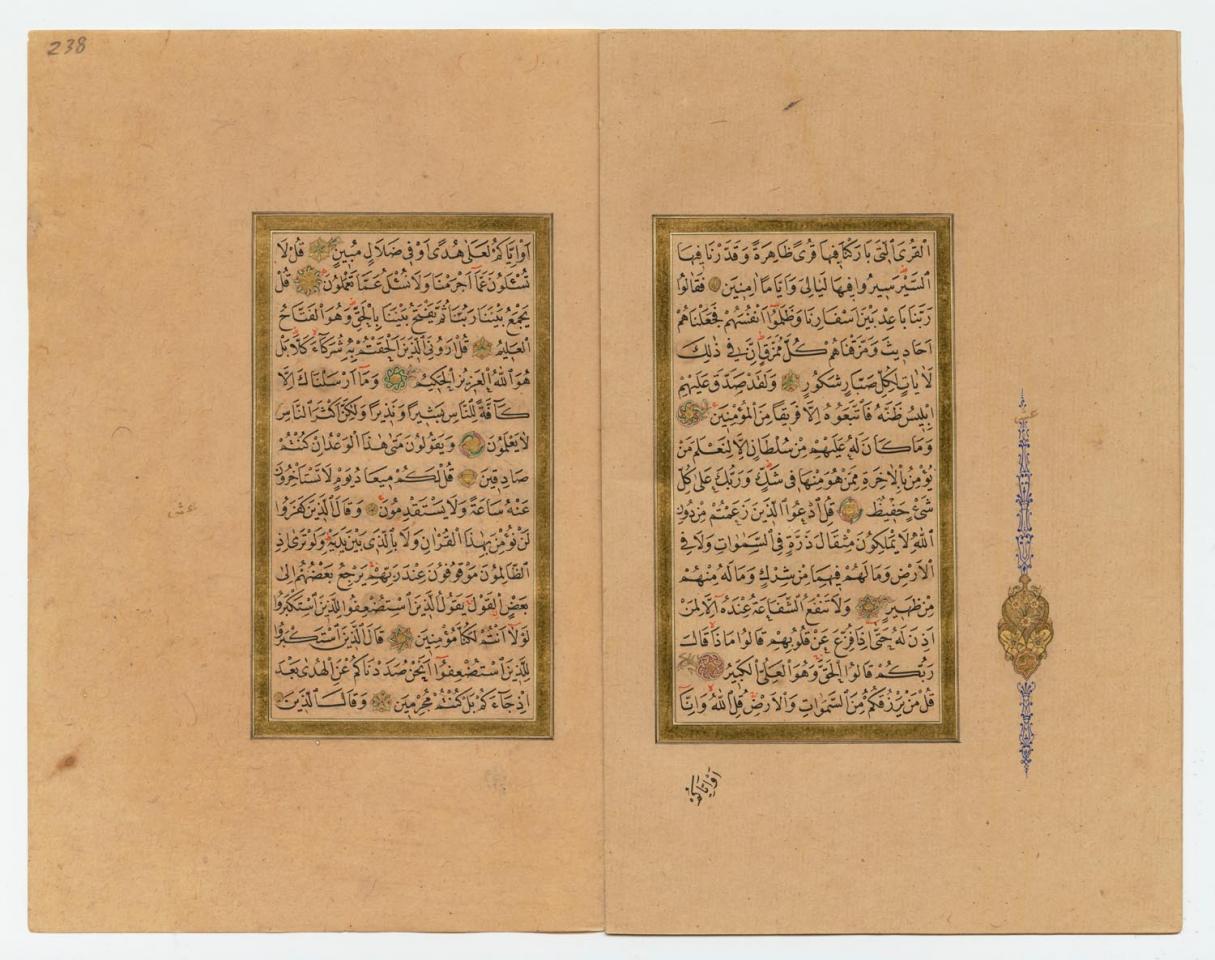 الْقُرَى الَّتِى بَارَكْنَا فِيهَا قُرًى ظَاهِرَةً وَقَدَّرْنَا فِيهَا
السَّيْرَ سِيرُوا فِيهَا لَيَالِىَ وَاَيَّامًا اٰمِنِينَ فَقَالُوا
رَبَّنَا بَاعِدْ بَيْنَ اَسْفَارِنَا وَظَلَمُوا اَنْفُسَهُمْ فَجَعَلْنَاهُمْ
اَحَادِيثَ وَمَزَّقْنَاهُمْ كُلَّ مُمَزَّقٍ اِنَّ فِى ذٰلِكَ
لَاٰيَاتٍ لِكُلِّ صَبَّارٍ شَكُورٍ وَلَقَدْ صَدَّقَ عَلَيْهِمْ
اِبْلِيسُ ظَنَّهُ فَاتَّبَعُوهُ اِلَّا فَرِيقًا مِنَ الْمُؤْمِنِينَ
وَمَا كَانَ لَهُ عَلَيْهِمْ مِنْ سُلْطَانٍ اِلَّا لِنَعْلَمَ مَنْ
يُؤْمِنُ بِالْاٰخِرَةِ مِمَّنْ هُوَ مِنْهَا فِى شَكٍّ وَرَبُّكَ عَلٰى كُلِّ
شَىْءٍ حَفِيظٌ قُلِ ادْعُوا الَّذِينَ زَعَمْتُمْ مِنْ دُونِ
اللّٰهِ لَا يَمْلِكُونَ مِثْقَالَ ذَرَّةٍ فِى السَّمٰوَاتِ وَلَا فِى
الْاَرْضِ وَمَا لَهُمْ فِيهِمَا مِنْ شِرْكٍ وَمَا لَهُ مِنْهُمْ
مِنْ ظَهِيرٍ وَلَا تَنْفَعُ الشَّفَاعَةُ عِنْدَهُ اِلَّا لِمَنْ
اَذِنَ لَهُ حَتّٰى اِذَا فُزِّعَ عَنْ قُلُوبِهِمْ قَالُوا مَاذَا قَالَ
رَبُّكُمْ قَالُوا الْحَقَّ وَهُوَ الْعَلِىُّ الْكَبِيرُ
قُلْ مَنْ يَرْزُقُكُمْ مِنَ السَّمٰوَاتِ وَالْاَرْضِ قُلِ اللّٰهُ وَاِنَّا
اَوْ اِيَّاكُمْ
238
اَوْ اِيَّاكُمْ لَعَلٰى هُدًى اَوْ فِى ضَلَالٍ مُبِينٍ قُلْ لَا
تُسْئَلُونَ عَمَّا اَجْرَمْنَا وَلَا نُسْئَلُ عَمَّا تَعْمَلُونَ قُلْ
يَجْمَعُ بَيْنَنَا رَبُّنَا ثُمَّ يَفْتَحُ بَيْنَنَا بِالْحَقِّ وَهُوَ الْفَتَّاحُ
الْعَلِيمُ قُلْ اَرُونِىَ الَّذِينَ اَلْحَقْتُمْ بِهِ شُرَكَاءَ كَلَّا بَلْ
هُوَ اللّٰهُ الْعَزِيزُ الْحَكِيمُ وَمَا اَرْسَلْنَاكَ اِلَّا
كَافَّةً لِلنَّاسِ بَشِيرًا وَنَذِيرًا وَلٰكِنَّ اَكْثَرَ النَّاسِ
لَا يَعْلَمُونَ وَيَقُولُونَ مَتٰى هٰذَا الْوَعْدُ اِنْ كُنْتُمْ
صَادِقِينَ قُلْ لَكُمْ مِيعَادُ يَوْمٍ لَا تَسْتَاْخِرُونَ
عَنْهُ سَاعَةً وَلَا تَسْتَقْدِمُونَ وَقَالَ الَّذِينَ كَفَرُوا
لَنْ نُؤْمِنَ بِهٰذَا الْقُرْاٰنِ وَلَا بِالَّذِى بَيْنَ يَدَيْهِ وَلَوْ تَرٰى اِذِ
الظَّالِمُونَ مَوْقُوفُونَ عِنْدَ رَبِّهِمْ يَرْجِعُ بَعْضُهُمْ اِلٰى
بَعْضٍ الْقَوْلَ يَقُولُ الَّذِينَ اسْتُضْعِفُوا لِلَّذِينَ اسْتَكْبَرُوا
لَوْلَا اَنْتُمْ لَكُنَّا مُؤْمِنِينَ قَالَ الَّذِينَ اسْتَكْبَرُوا
لِلَّذِينَ اسْتُضْعِفُوا اَنَحْنُ صَدَدْنَاكُمْ عَنِ الْهُدٰى بَعْدَ
اِذْ جَاءَكُمْ بَلْ كُنْتُمْ مُجْرِمِينَ وَقَالَ الَّذِينَ